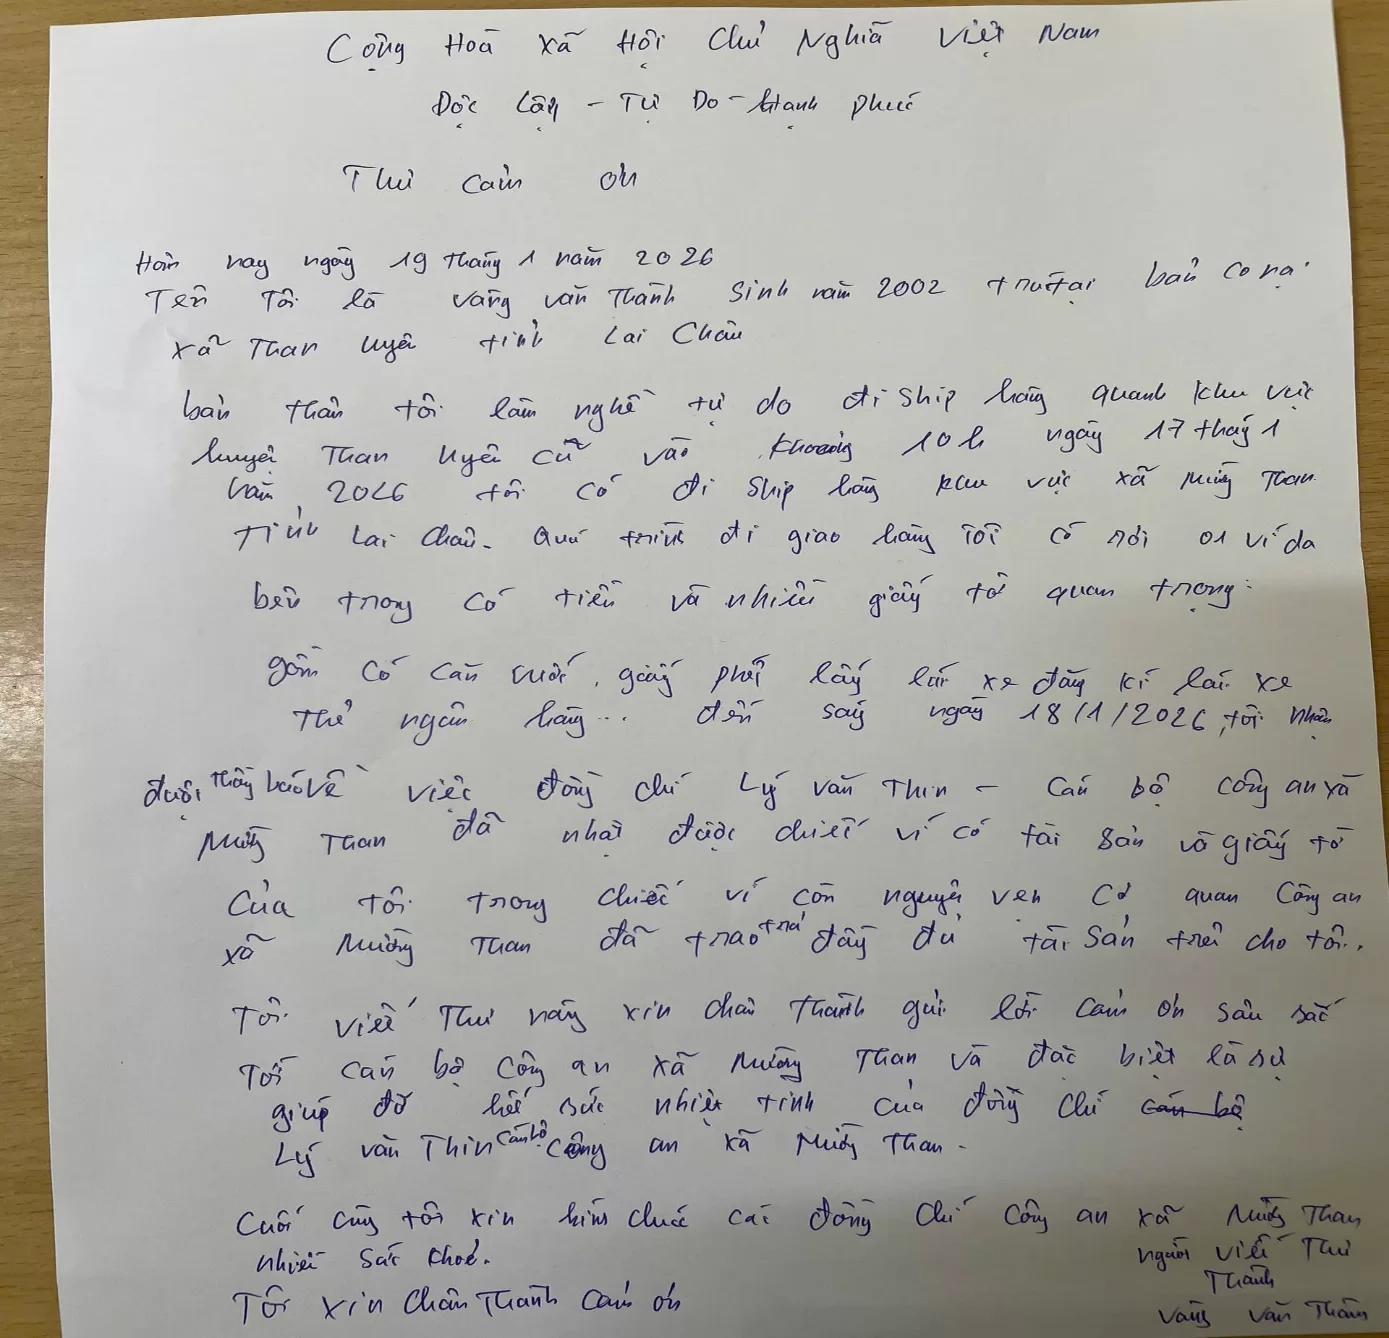 Cộng Hoà Xã Hội Chủ Nghĩa Việt Nam
Độc Lập - Tự Do - Hạnh phúc
Thư cảm ơn
Hôm nay ngày 19 tháng 1 năm 2026
Tên Tôi là vàng văn Thành Sinh năm 2002 trú tại bản co nọi
xã Than Uyên tỉnh Lai Châu
bản thân tôi làm nghề tự do đi ship hàng quanh khu vực
huyện Than Uyên cũ vào khoảng 10h ngày 17 tháng 1
năm 2026 tôi có đi ship hàng khu vực xã Mường Than
tỉnh Lai Châu. Quá trình đi giao hàng tôi có rơi 01 ví da
bên trong có tiền và nhiều giấy tờ quan trọng:
gồm có căn cước, giấy phép lấy lái xe đăng kí lái xe
thẻ ngân hàng... đến sáng ngày 18/1/2026, tôi nhận
được thông báo về việc đồng chí Lý văn Thìn - Cán bộ công an xã
Mường Than đã nhặt được chiếc ví có tài sản và giấy tờ
của tôi trong chiếc ví còn nguyên vẹn Cơ quan Công an
xã Mường Than đã trao trả đầy đủ tài sản trên cho tôi.
Tôi viết Thư này xin chân thành gửi lời cảm ơn sâu sắc
Tới cán bộ công an xã Mường Than và đặc biệt là sự
giúp đỡ hết sức nhiệt tình của đồng chí cán bộ
Lý văn Thìn cán bộ công an xã Mường Than.
Cuối cùng tôi xin kính chúc các đồng chí công an xã Mường Than
nhiều sức khoẻ. người viết Thư
Thành
Tôi xin chân Thành cảm ơn vàng văn Thành